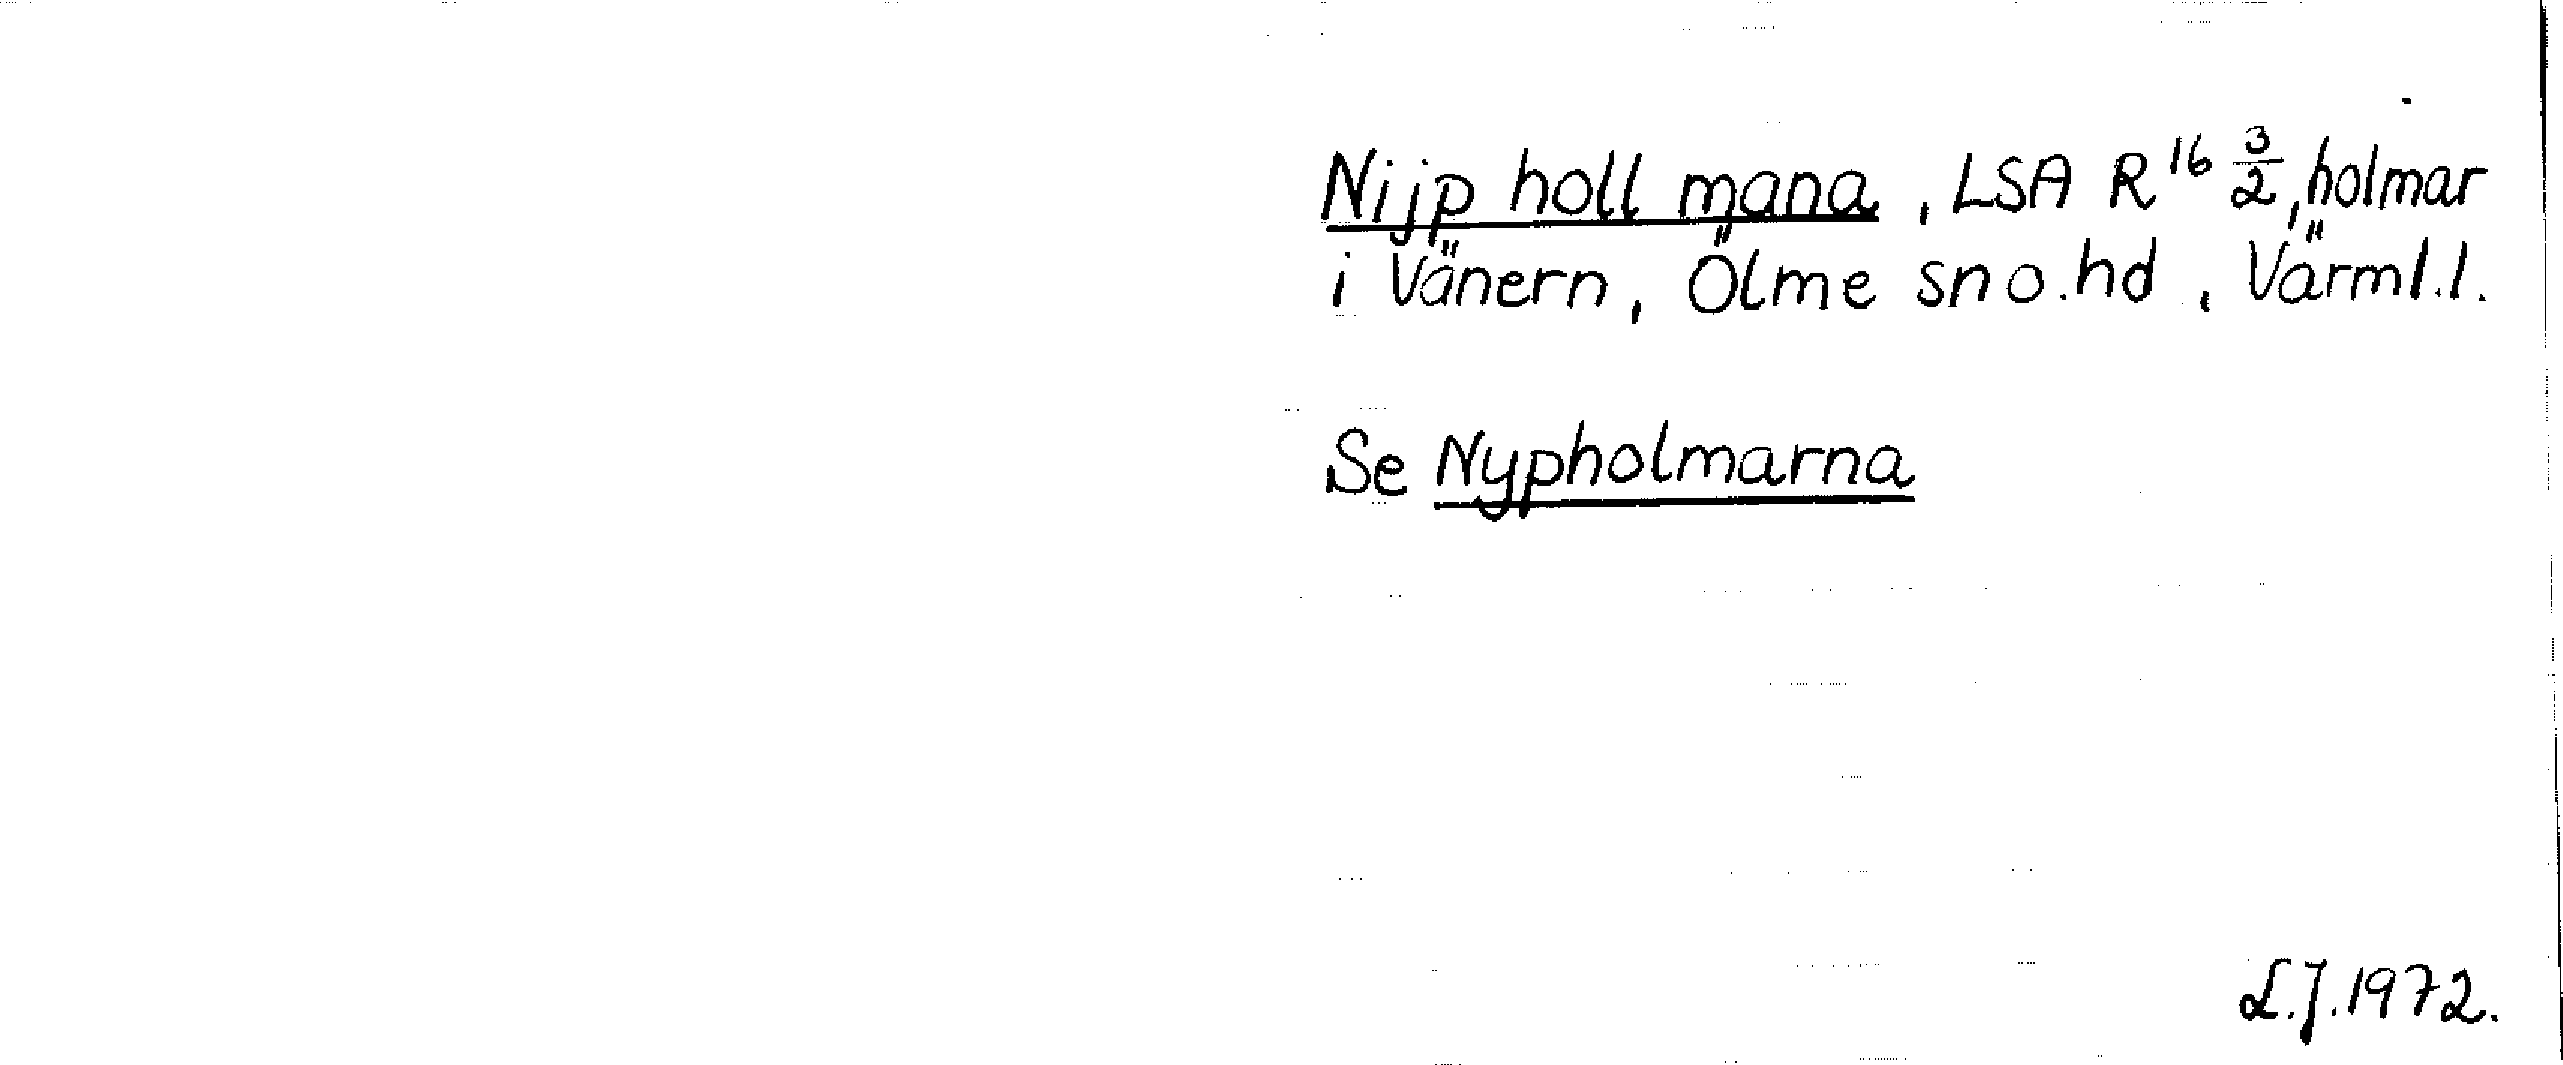 Nijp holl mana, LSA R¹⁶ 3/2, holmar
i Vänern, Ölme sn o. hd, Värml.l.
Se Nypholmarna
L.J. 1972.